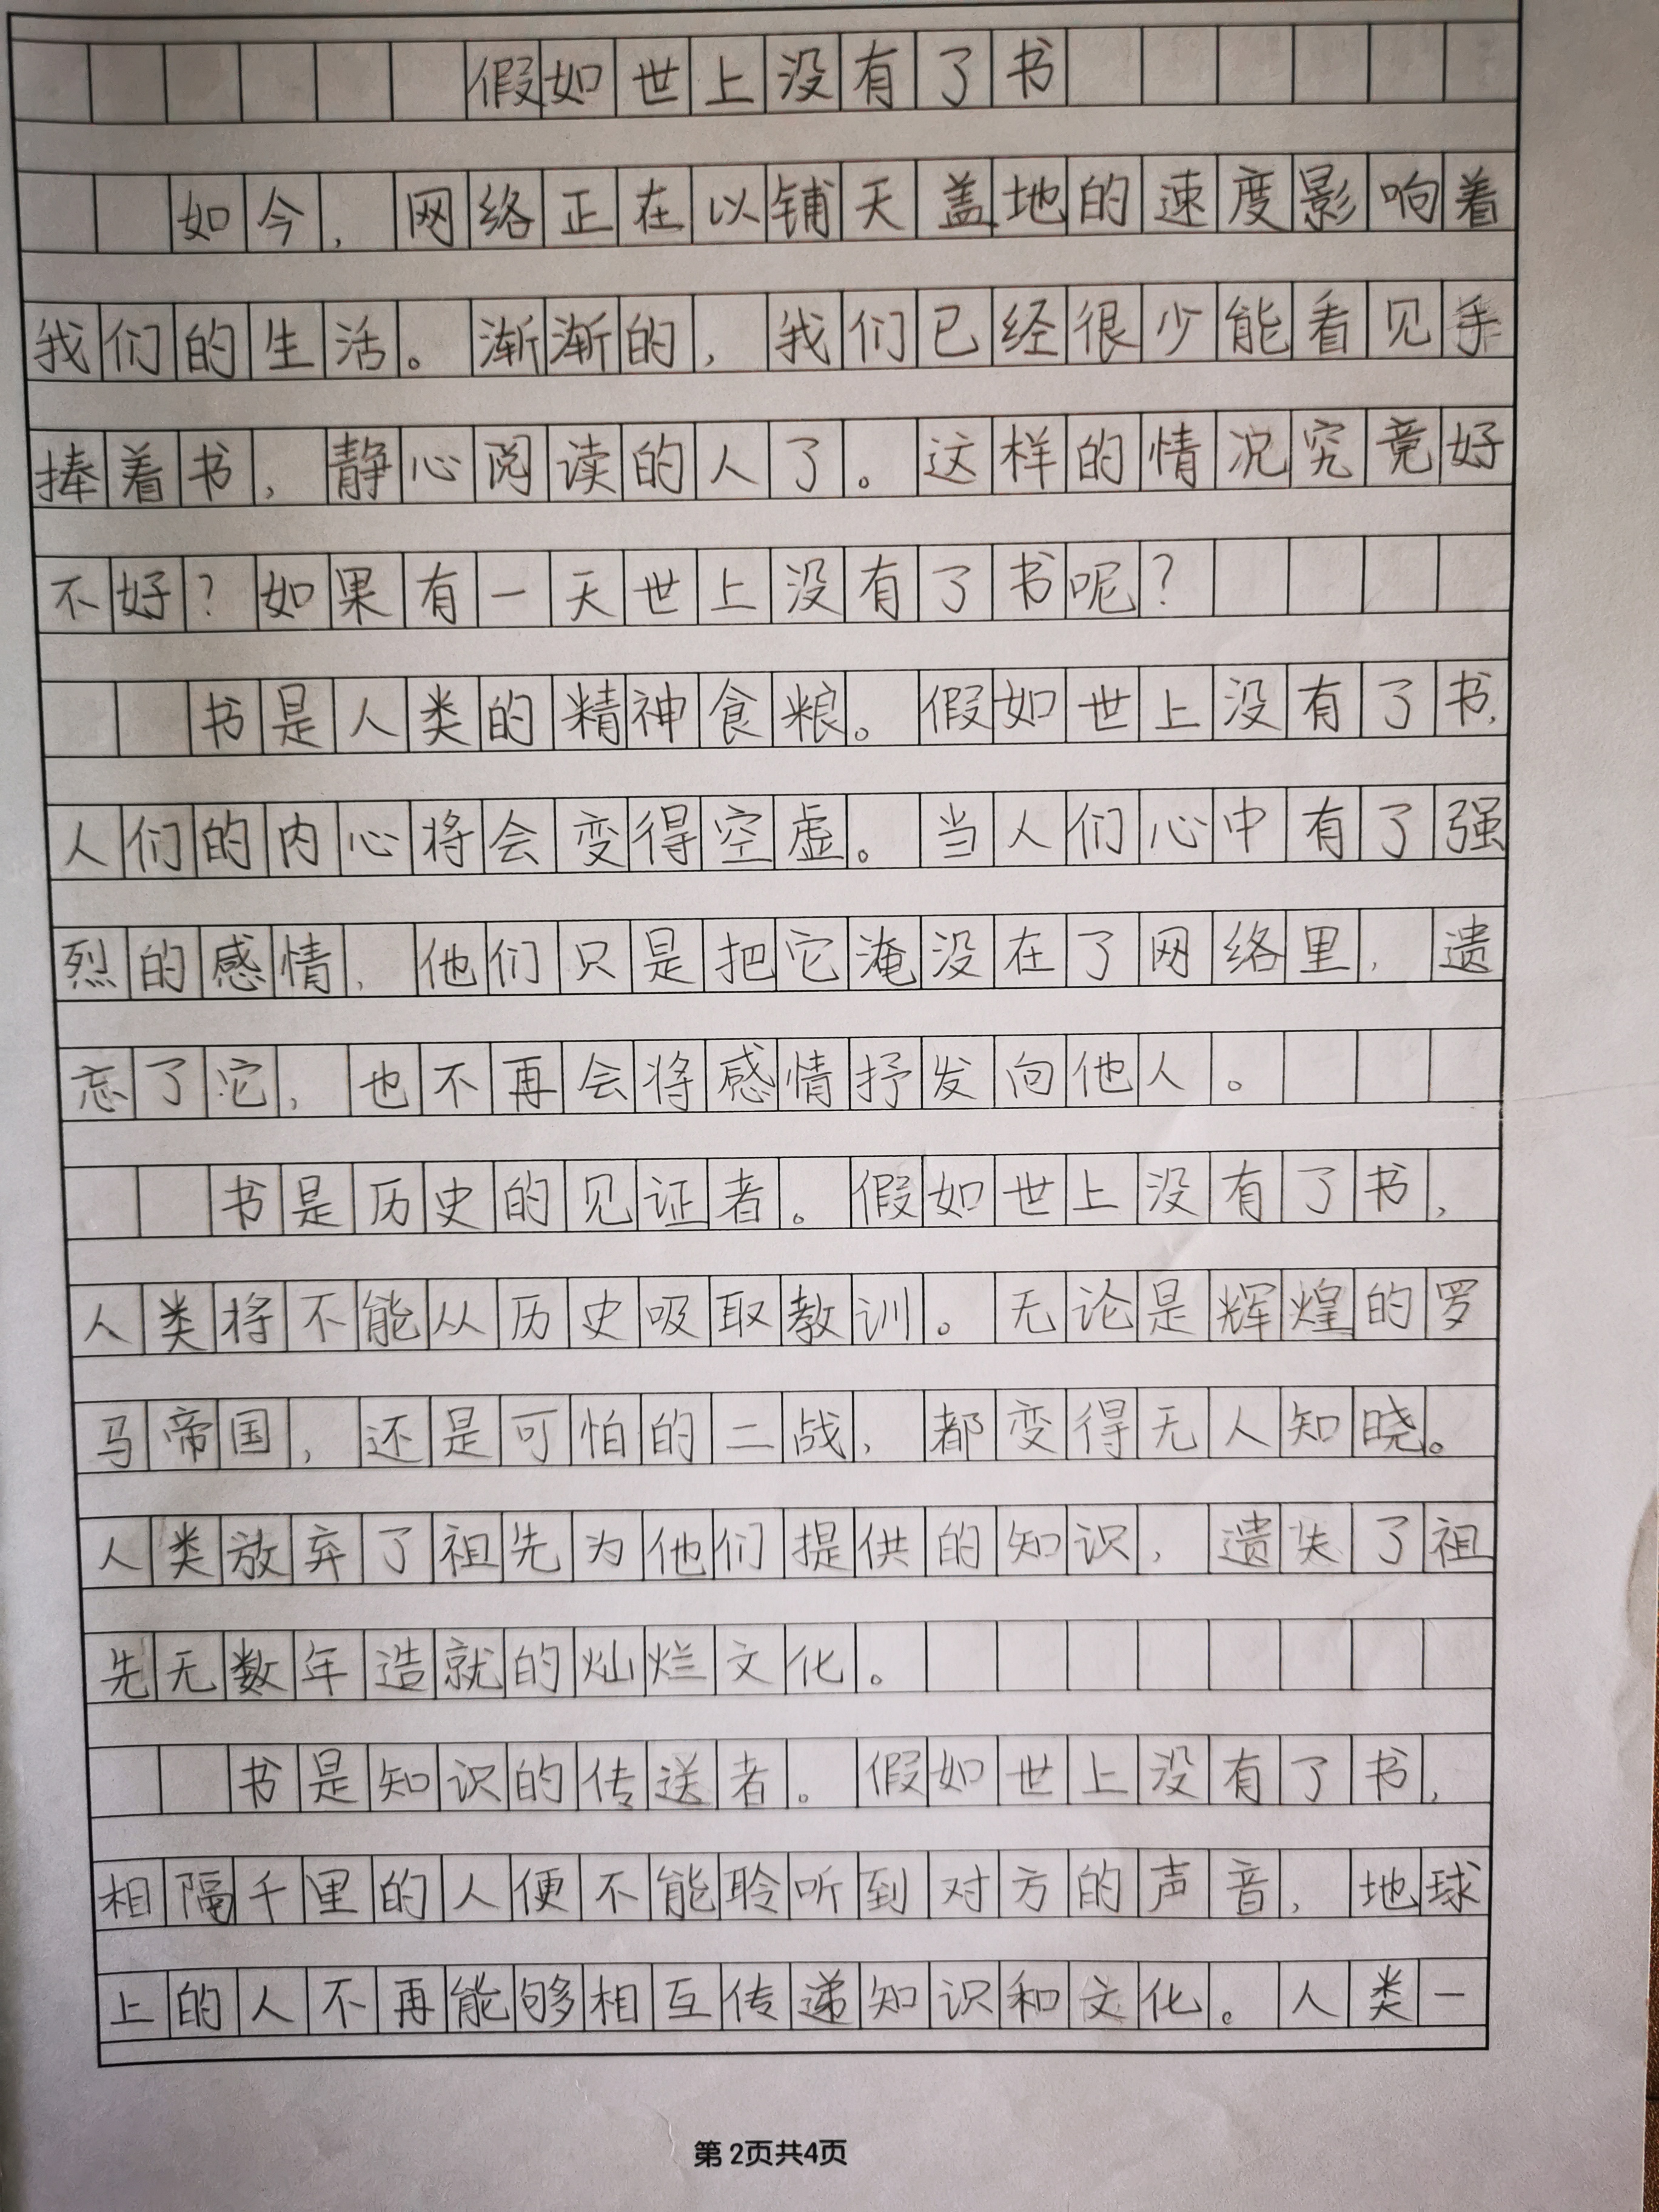 假如世上没有了书
如今，网络正在以铺天盖地的速度影响着
我们的生活。渐渐的，我们已经很少能看见手
捧着书，静心阅读的人了。这样的情况究竟好
不好？如果有一天世上没有了书呢？
书是人类的精神食粮。假如世上没有了书，
人们的内心将会变得空虚。当人们心中有了强
烈的感情，他们只是把它淹没在了网络里，遗
忘了它，也不再会将感情抒发向他人。
书是历史的见证者。假如世上没有了书，
人类将不能从历史吸取教训。无论是辉煌的罗
马帝国，还是可怕的二战，都变得无人知晓。
人类放弃了祖先为他们提供的知识，遗失了祖
先无数年造就的灿烂文化。
书是知识的传送者。假如世上没有了书，
相隔千里的人便不能聆听到对方的声音，地球
上的人不再能够相互传递知识和文化。人类一
第2页共4页